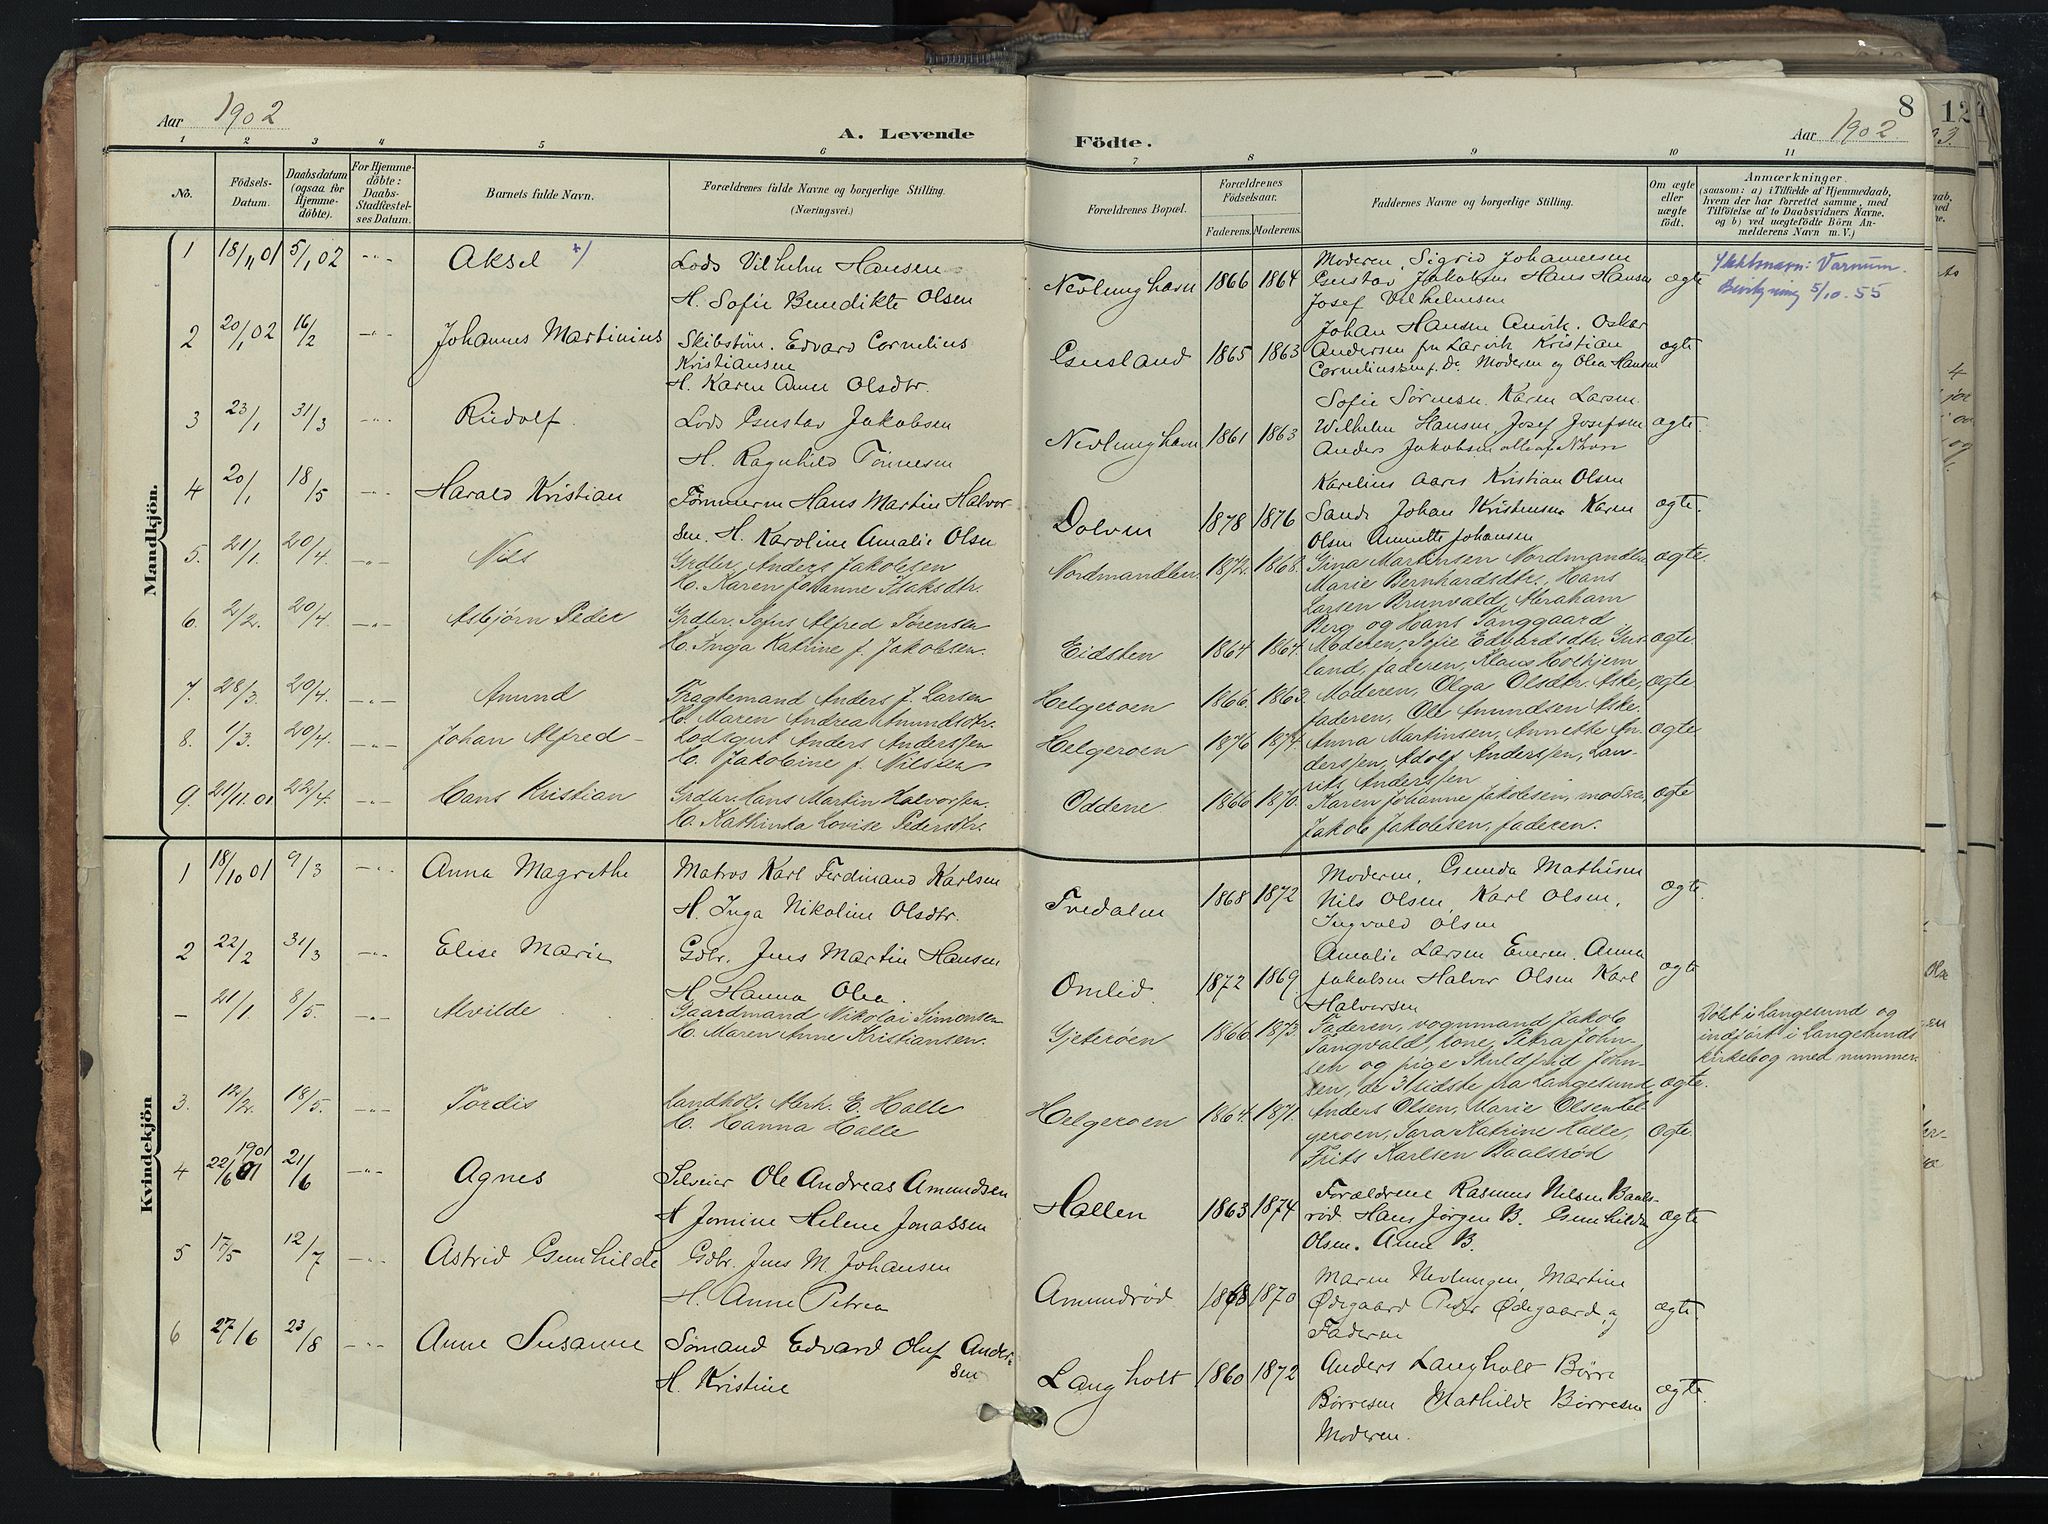 Aar 1902
A. Levende
Födte.
Aar 1902
8
12
1 2 3 4 5 6 7 8 9 10 11
No. Födsels-Datum. Daabsdatum (ogsaa for Hjemme-döbte). For Hjemme-döbte: Daabs-Stadfæstel-ses Datum. Barnets fulde Navn. Forældrenes fulde Navne og borgerlige Stilling. (Næringsvei.) Forældrenes Bopæl. Forældrenes Födselsaar. Faderens. Moderens. Faddernes Navne og borgerlige Stilling. Om ægte eller uægte födt. Anmærkninger. (saasom: a) i Tilfælde af Hjemmedaab, hvem der har forrettet samme, med Tilföielse af to Daabsvidners Navne, og b) ved uegtefödte Börn An-melderens Navn m. V.)
Mandkjön.
1 18/11 01 5/1 02 -"- Aksel +/ Lods Vilhelm Hansen
H. Sofie Benedikte Olsen
Nevlunghavn 1866 1864 Moderen, Sigrid Johannesen
Gustav Jakobsen Hans Hansen
Josef Vilhelmsen
ægte Slektsnavn: Varnum.
5/10.55
2 20/1 02 16/2 -"- Johannes Martinius Skibstøm. Edvard Cornelius
Kristiansen
H. Karen Anne Olsdtr.
Gusland 1865 1863 Johan Hansen Anvik. Oskar
Andersen fra Larvik Kristian
Corneliussen f. Do Moderen og Olea Hansen
ægte
3 23/1 31/3 -"- Rudolf. Lods Gustav Jakobsen
H. Ragnhild Tønnesen
Nevlunghavn 1861 1863 Sofie Sørensen. Karen Larsen
Wilhelm Hansen, Josef Josefsen
Anders Jakobsen alle af N.havn
ægte.
4 20/1 18/5 -"- Harald Kristian Tømmerm Hans Martin Halvor-
sen. H. Karoline Amalie Olsen
Dolven 1878 1876 Karelius Aares Kristian Olsen
Sande Johan Kristensen Karen
Olsen Annette Johansen
ægte.
5. 21/1. 20/4. -"- Nils Grdbr. Anders Jakobsen
H. Karen Johanne Isaksdtr.
Nordmandlen 1872. 1868. Gina Martinsen Nordmandlen
Marie Bernhardsdtr., Hans
Larsen Brunvald, Abraham
Berg og Hans Tanggaard
ægte.
6. 2/2. 20/4. -"- Asbjørn Peder Grdbr. Sofus Alfred Sørensen
H. Inga Katrine f. Jakobsen.
Eidsten 1864 1864. Moderen, Sofie Edvardsdtr. Gus-
land, faderen, Klaus Holtjem
ægte.
7. 28/3. 20/4. -"- Amund Fragtemand Anders J. Larsen
H. Maren Andrea Amundsdtr.
Helgeroen 1866. 1863. Moderen, Olga Olsdtr. Aske,
faderen, Ole Amundsen Aske.
ægte.
8. 1/3. 20/4. -"- Johan Alfred - Lodsgut Anders Anderssen
H. Jakobine f. Nilssen
Helgeroen 1876 1874. Anna Martinsen, Annette An-
derssen, Adolf Anderssen, Lau-
rits Anderssen
ægte.
9. 21/11.01 22/4. -"- Hans Kristian Grdbr. Hans Martin Halvorsen.
H. Kathinka Lovise Pedersdtr.
Oddene 1866 1870. Karen Johanne Jakobsen, moderen,
Jakob Jakobsen, faderen.
ægte
Kvindekjön
1 18/10 01 9/3 -"- Anna Magrethe Matros Karl Ferdinand Karlsen
H. Inga Nikoline Olsdtr.
Fredalen 1868 1872 Moderen, Gunda Mathisen
Nils Olsen, Karl Olsen,
Ingvald Olsen
ægte.
2 22/2 31/3 -"- Elise Marie Gdbr. Jens Martin Hansen
H Hanna Olea.
Omlid. 1872 1869. Amalie Larsen Anna
Jakobsen Halvor Olsen Karl
Halvorsen
ægte
- 21/1. 8/5. -"- Alvilde Gaardmand Nikolai Simonsen
H. Maren Anne Kristiansen.
Gjeterøen 1866 1873. Faderen, vognmand Jakob
Tangvald, kone, Petra John-
sen og pige Skuldfrid John-
sen, de 3 sidste fra Langesund
ægte. Døbt i Langesund og
indført i Langesunds
kirkebog med nummer.
3. 12/2. 18/5. -"- Tordis Landhdl. Abrh. E. Halle
H. Hanna Halle
Helgeroen 1864. 1871. Anders Olsen, Marie Olsen Hel-
geroen, Sara Katrine Halle,
Frits Karlsen Baalsrød
ægte.
4 22/6 01 1901 21/6 -"- Agnes Selveier Ole Andreas Amundsen
H Jormine Helene Jonassen
Hallen 1863 1874 Forældrene Rasmus Nilsen Baals-
rød. Hans Jørgen B. Gunhilde
Olsen. Anne B.
ægte
5 17/5 12/7 -"- Astrid Gunhilde Gdbr. Jens M. Johansen
H. Anne Petrea
Amundrød 1868 1870 Maren Nevlungen, Martine
Ødegaard Peder Ødegaard, og
Faderen
ægte.
6 27/6 23/8 -"- Anne Susanne Sømand Edvard Oluf Ander-
sen
H. Kristine
Langholt 1860 1872 Anders Langholt Børre
Børresen Mathilde Børresen
Moderen.
ægte.